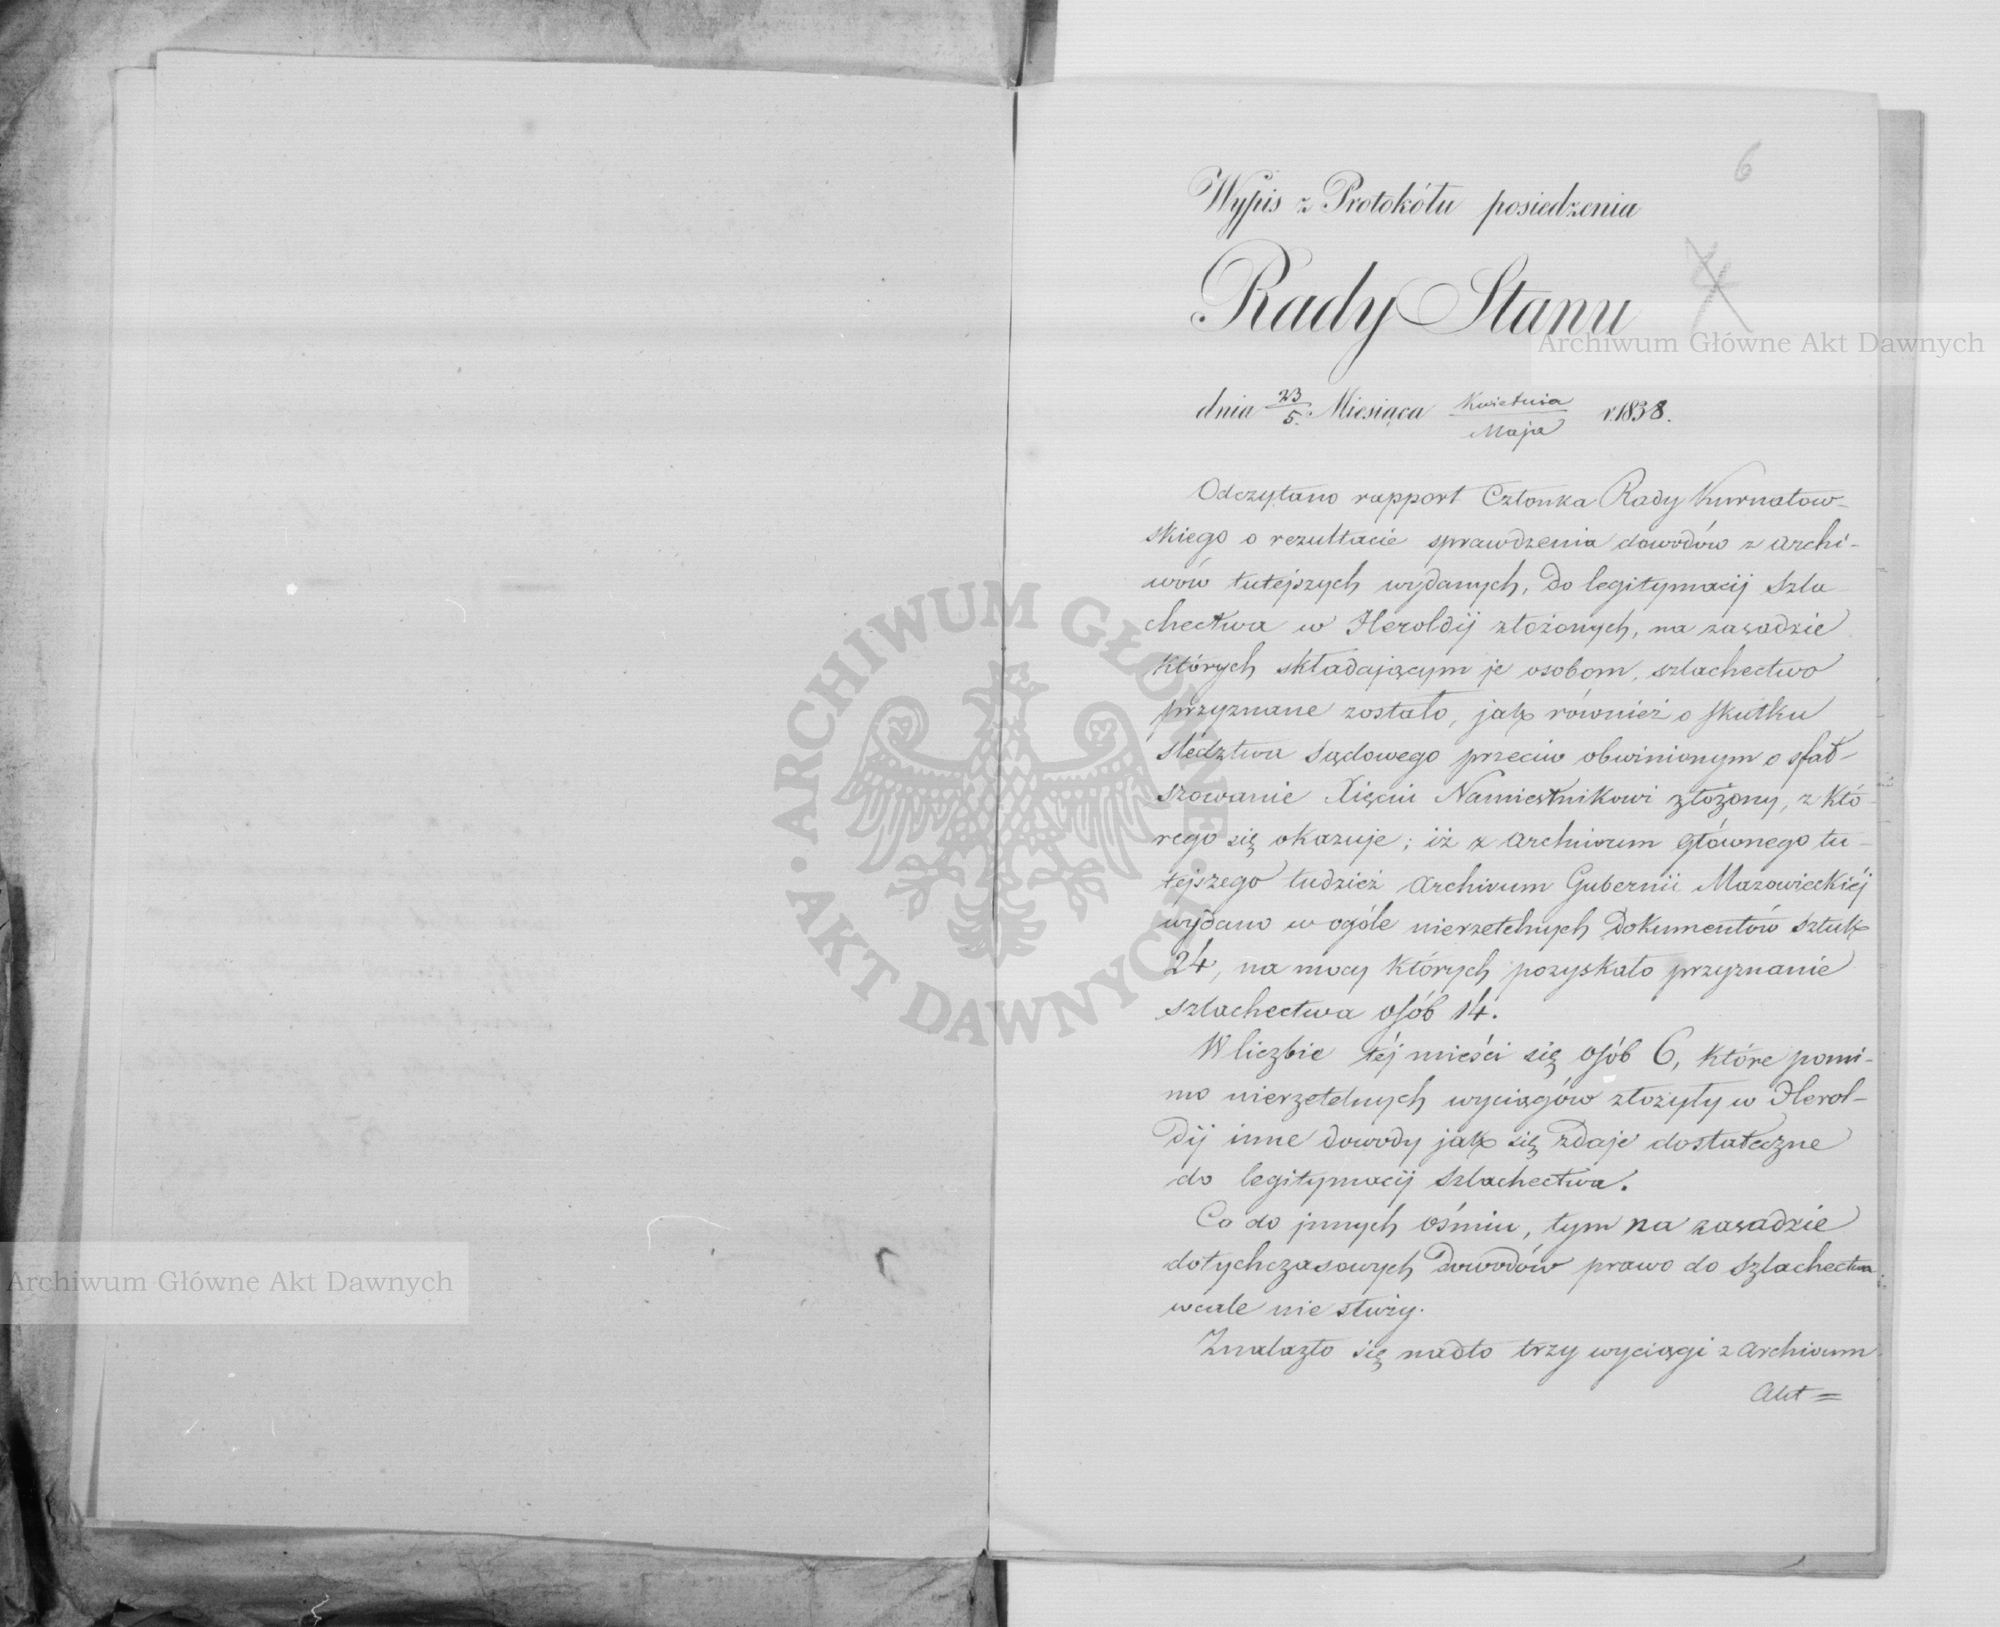 6
Wypis z Protokółu posiedzenia
Rady Stanu
4
dnia 23/5. Miesiąca Kwietnia/Maja r. 1838.
Odczytano rapport Członka Rady Kurnatow-
skiego o rezultacie sprawdzenia dowodów z archi-
wów tutejszych wydanych, do legitymacij szla
chectwa w Heroldij złożonych, na zasadzie
których składającym je osobom, szlachectwo
przyznane zostało, jak również o skutku
śledztwa sądowego przeciw obwinionym o sfał-
szowanie Xięciu Namiestnikowi złożony, z któ-
rego się okazuje; iż z archiwum głównego tu-
tejszego tudzież archiwum Gubernii Mazowieckiéj
wydano w ogóle nierzetelnych dokumentów sztuk
24, na mocy których pozyskało przyznanie
szlachectwa osób 14.
W liczbie téj mieści się osób 6, które pomi-
mo nierzetelnych wyciągów złożyły w Herol-
dij inne dowody jak się zdaje dostateczne
do legitymacij szlachectwa.
Co do innych ośmiu, tym na zasadzie
dotychczasowych dowodów prawo do szlachectwa
wcale nie służy.
Znalazło się nadto trzy wyciągi z archiwum
Akt =
Archiwum Główne Akt Dawnych
Archiwum Główne Akt Dawnych
ARCHIWUM GŁÓWNE · AKT DAWNYCH ·